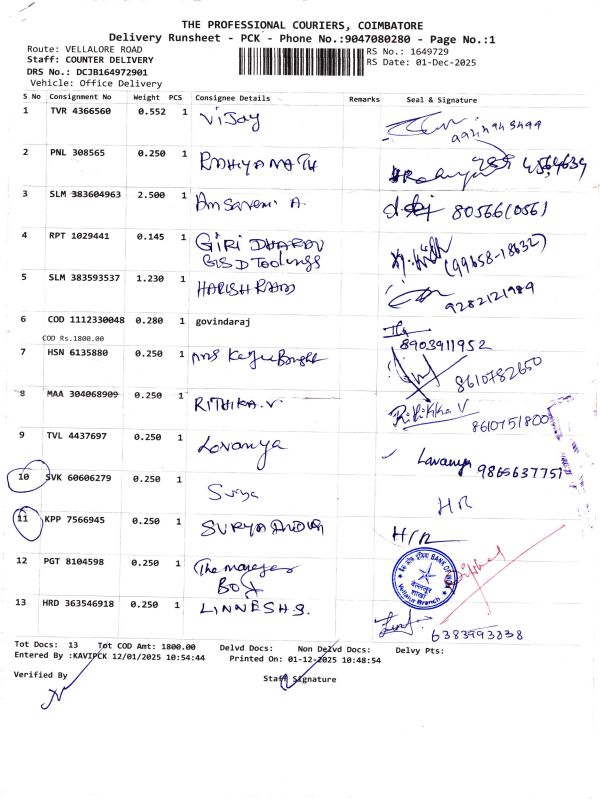 THE PROFESSIONAL COURIERS, COIMBATORE
Delivery Runsheet - PCK - Phone No.:9047080280 - Page No.:1
Route: VELLALORE ROAD
RS No.: 1649729
Staff: COUNTER DELIVERY
RS Date: 01-Dec-2025
DRS No.: DCJB164972901
Vehicle: Office Delivery
S No Consignment No Weight PCS Consignee Details Remarks Seal & Signature
1 TVR 4366560 0.552 1 Vijay
2 PNL 308565 0.250 1 RADHYANATH
3 SLM 383604963 2.500 1 A. 80566
4 RPT 1029441 0.145 1 GIRI DHARAN (99658-18632)
GIS D Toolings
5 SLM 383593537 1.230 1 HARISH RAM 9282121989
6 COD 1112330048 0.280 1 govindaraj
COD Rs.1800.00
8903911952
7 HSN 6135880 0.250 1 8610782650
8 MAA 304068909 0.250 1 RITHIKA.V Rithikka V 8610751800
9 TVL 4437697 0.250 1 Lavanya Lavanya 9865637757
10 SVK 60606279 0.250 1 Surya HR
11 KPP 7566945 0.250 1 SURYA H/R
12 PGT 8104598 0.250 1 The manager
BOI
BANK OF INDIA
वेल्लूर
शाखा
Vellalur Branch
13 HRD 363546918 0.250 1 LINNESH S. 6383993838
Tot Docs: 13 Tot COD Amt: 1800.00 Delvd Docs: Non Delvd Docs: Delvy Pts:
Entered By :KAVIPCK 12/01/2025 10:54:44 Printed On: 01-12-2025 10:48:54
Verified By Staff Signature